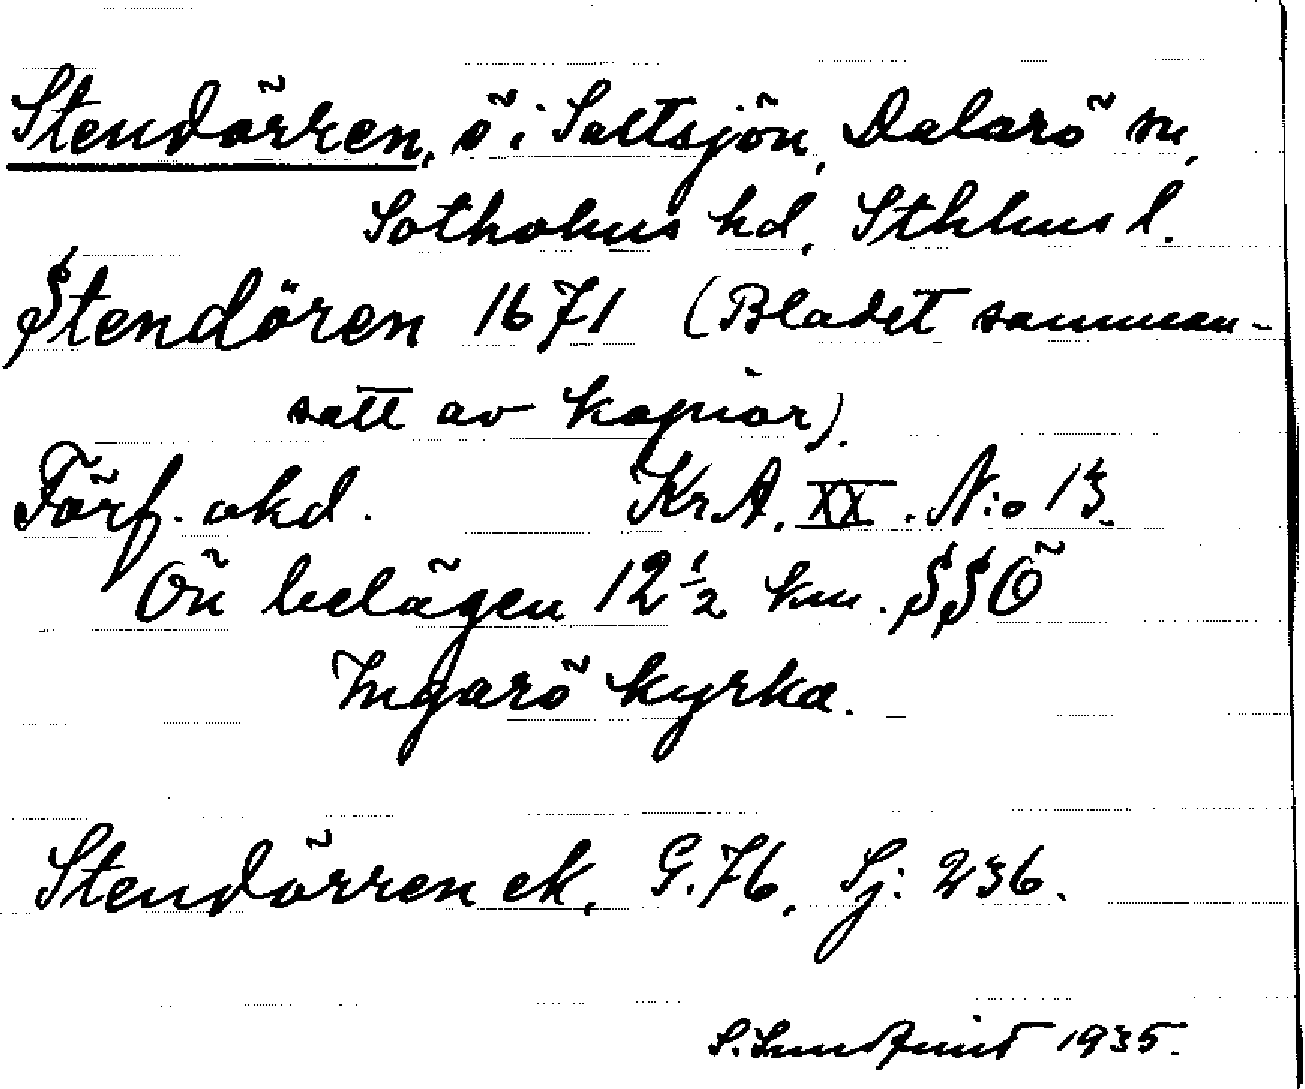 Stendörren, ö i Saltsjön, Dalarö sn,
Sotholms hd, Sthlms l.
Stendören 1671 (Bladet samman-
satt av kopior).
Förf. okd. Kr.A. XX. N:o 13.
Ön belägen 12 1/2 km. SSÖ
Ingarö kyrka.
Stendörren ek. G.76, Sj: 236.
S. Lundqvist 1935.